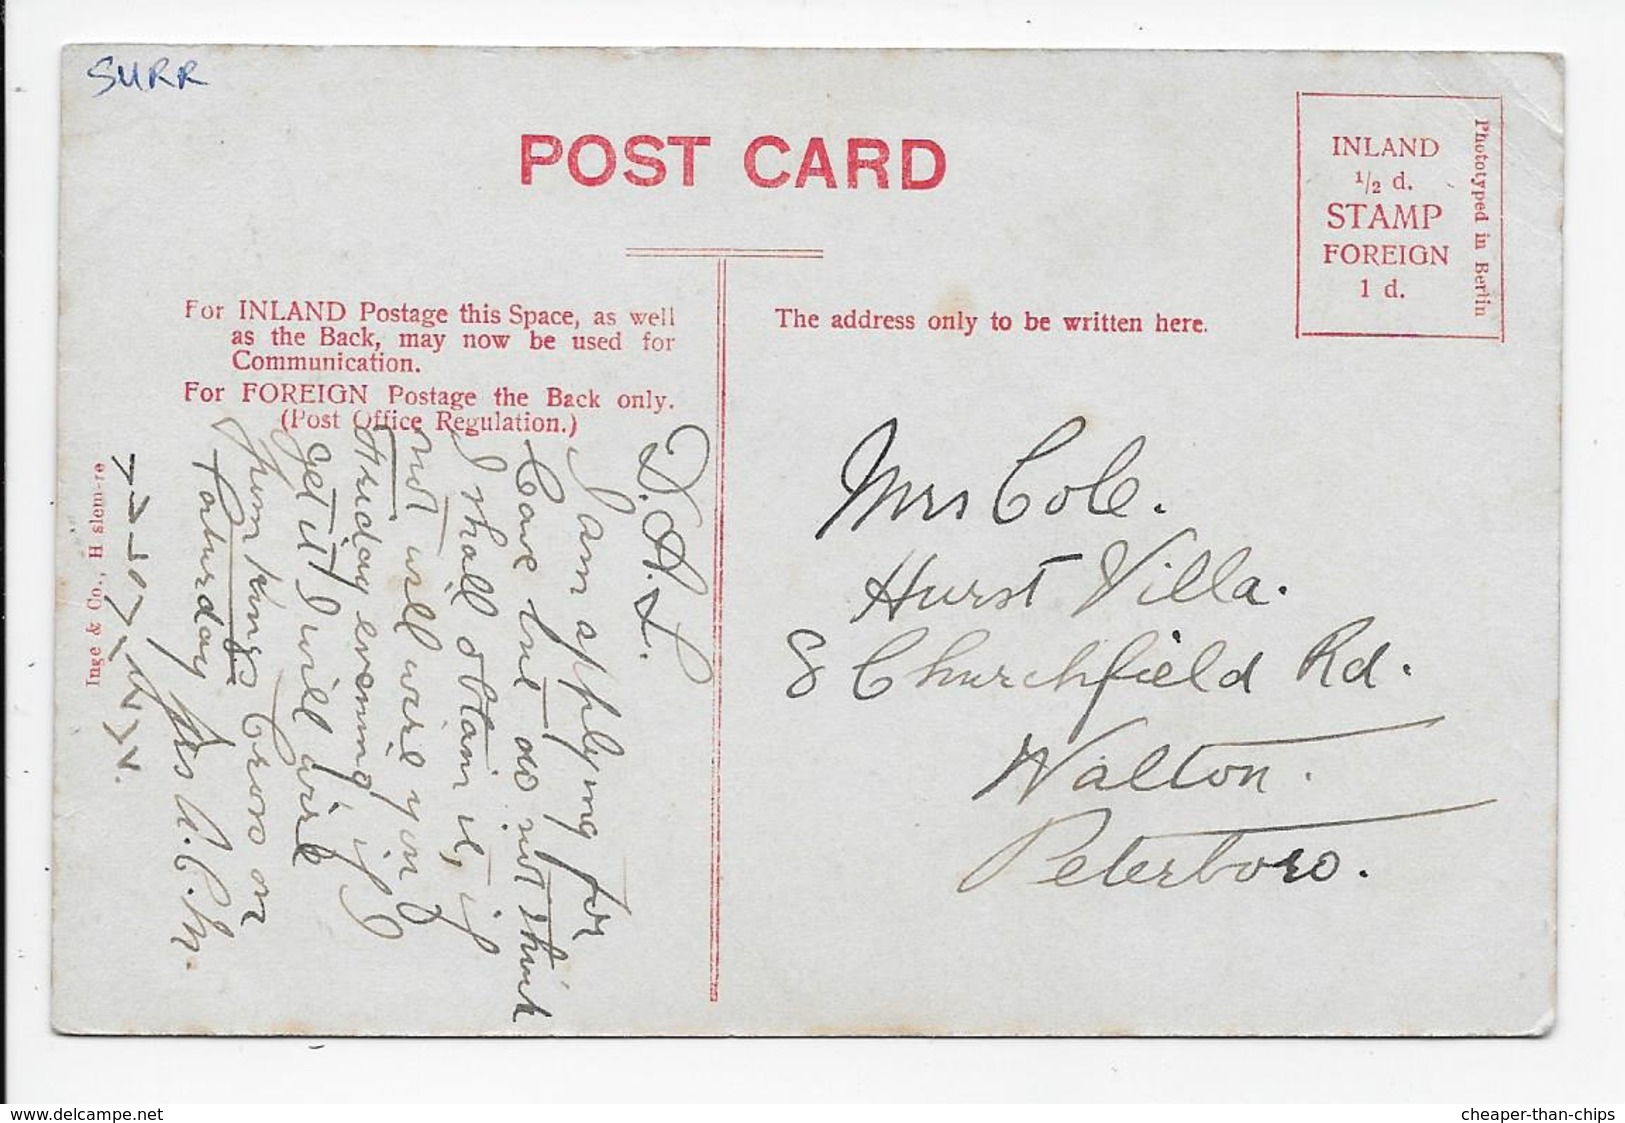 SURR
POST CARD
INLAND
1/2 d.
STAMP
FOREIGN
1 d.
Phototyped in Berlin
For INLAND Postage this Space, as well
as the Back, may now be used for
Communication.
For FOREIGN Postage the Back only.
(Post Office Regulation.)
The address only to be written here.
D.A.L.
I am applying for
leave but do not think
I shall obtain it, if
not will wire you
Friday evening if I
get it I will wire
from Kings Cross on
Saturday
Mrs Cole.
Hurst Villa.
8 Churchfield Rd.
Walton.
Peterboro.
Inge & Co., H slem-re
www.delcampe.net
cheaper-than-chips